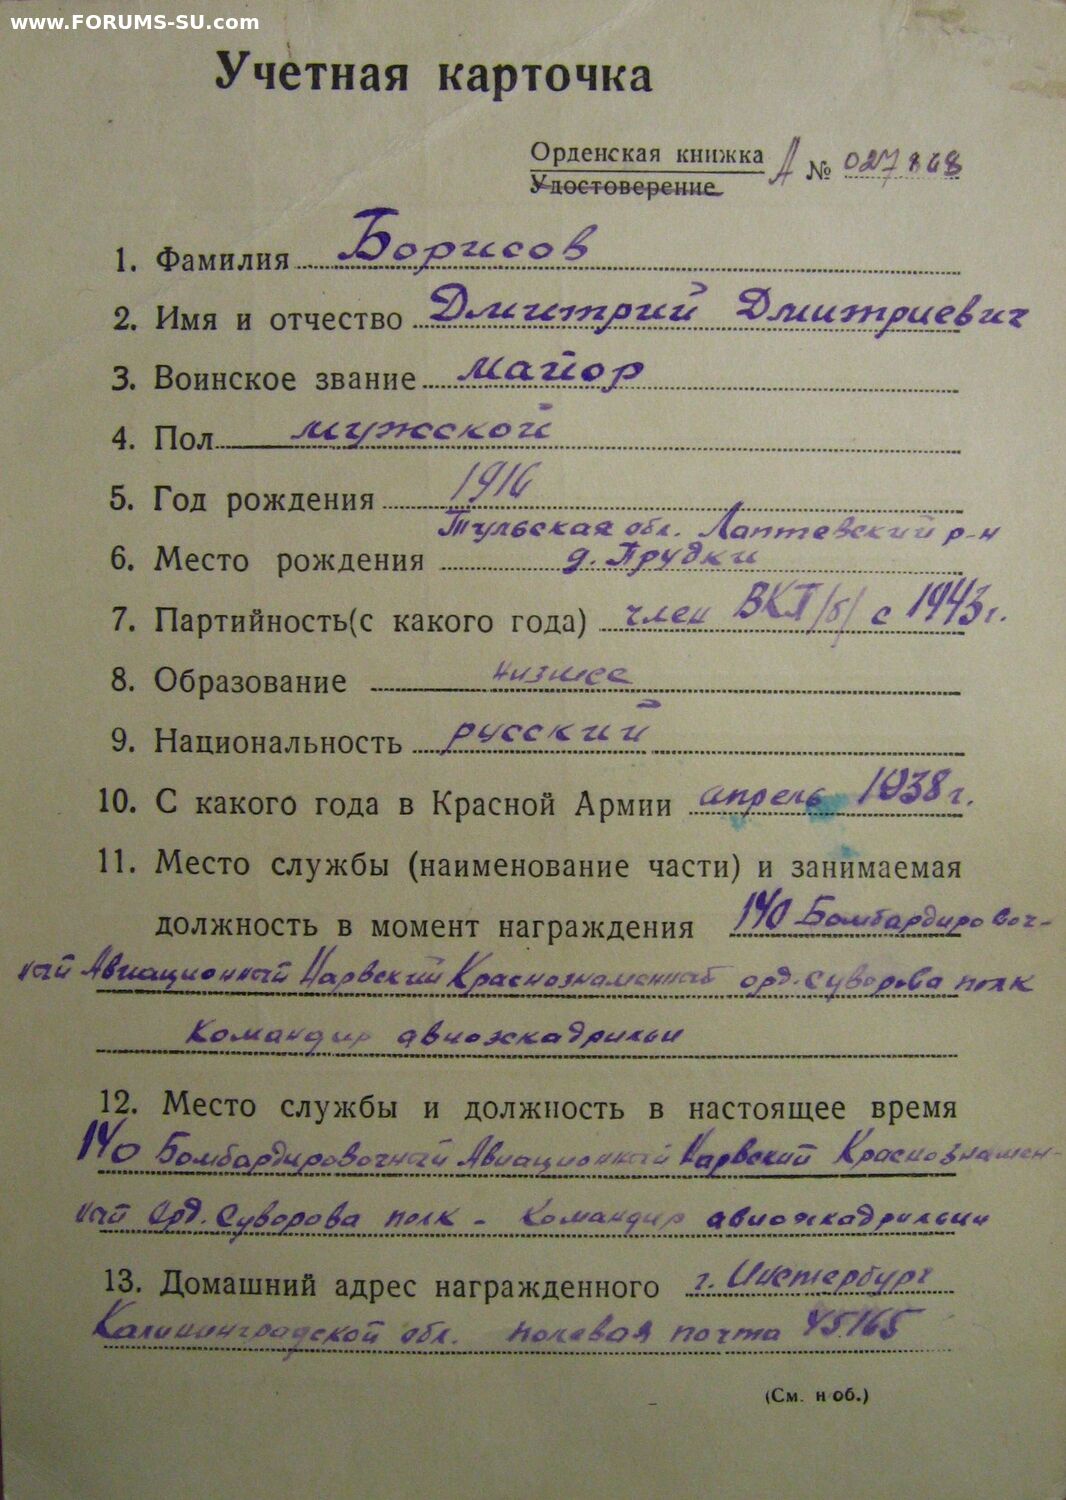 www.FORUMS-SU.com
Учетная карточка
Орденская книжка А № 027868
Удостоверение
1. Фамилия Борисов
2. Имя и отчество Дмитрий Дмитриевич
3. Воинское звание майор
4. Пол мужской
5. Год рождения 1916
Тульская обл. Лаптевский р-н
6. Место рождения д. Прудки
7. Партийность(с какого года) член ВКП/б/ с 1943г.
8. Образование низшее
9. Национальность русский
10. С какого года в Красной Армии апрель 1938г.
11. Место службы (наименование части) и занимаемая
должность в момент награждения 140 Бомбардировоч-
ный Авиационный Нарвский Краснознаменный орд. Суворова полк
Командир авиоэскадрильи
12. Место службы и должность в настоящее время
140 Бомбардировочный Авиационный Нарвский Краснознамен-
ный Орд. Суворова полк - Командир авиоэскадрильи
13. Домашний адрес награжденного г. Инстербург
Калининградской обл. полевая почта 45165
(См. н об.)